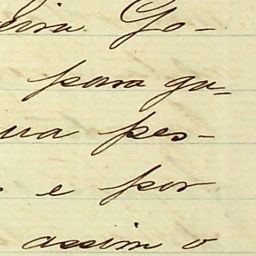 eira Go-
para ga-
ua pes-
e por
assim o